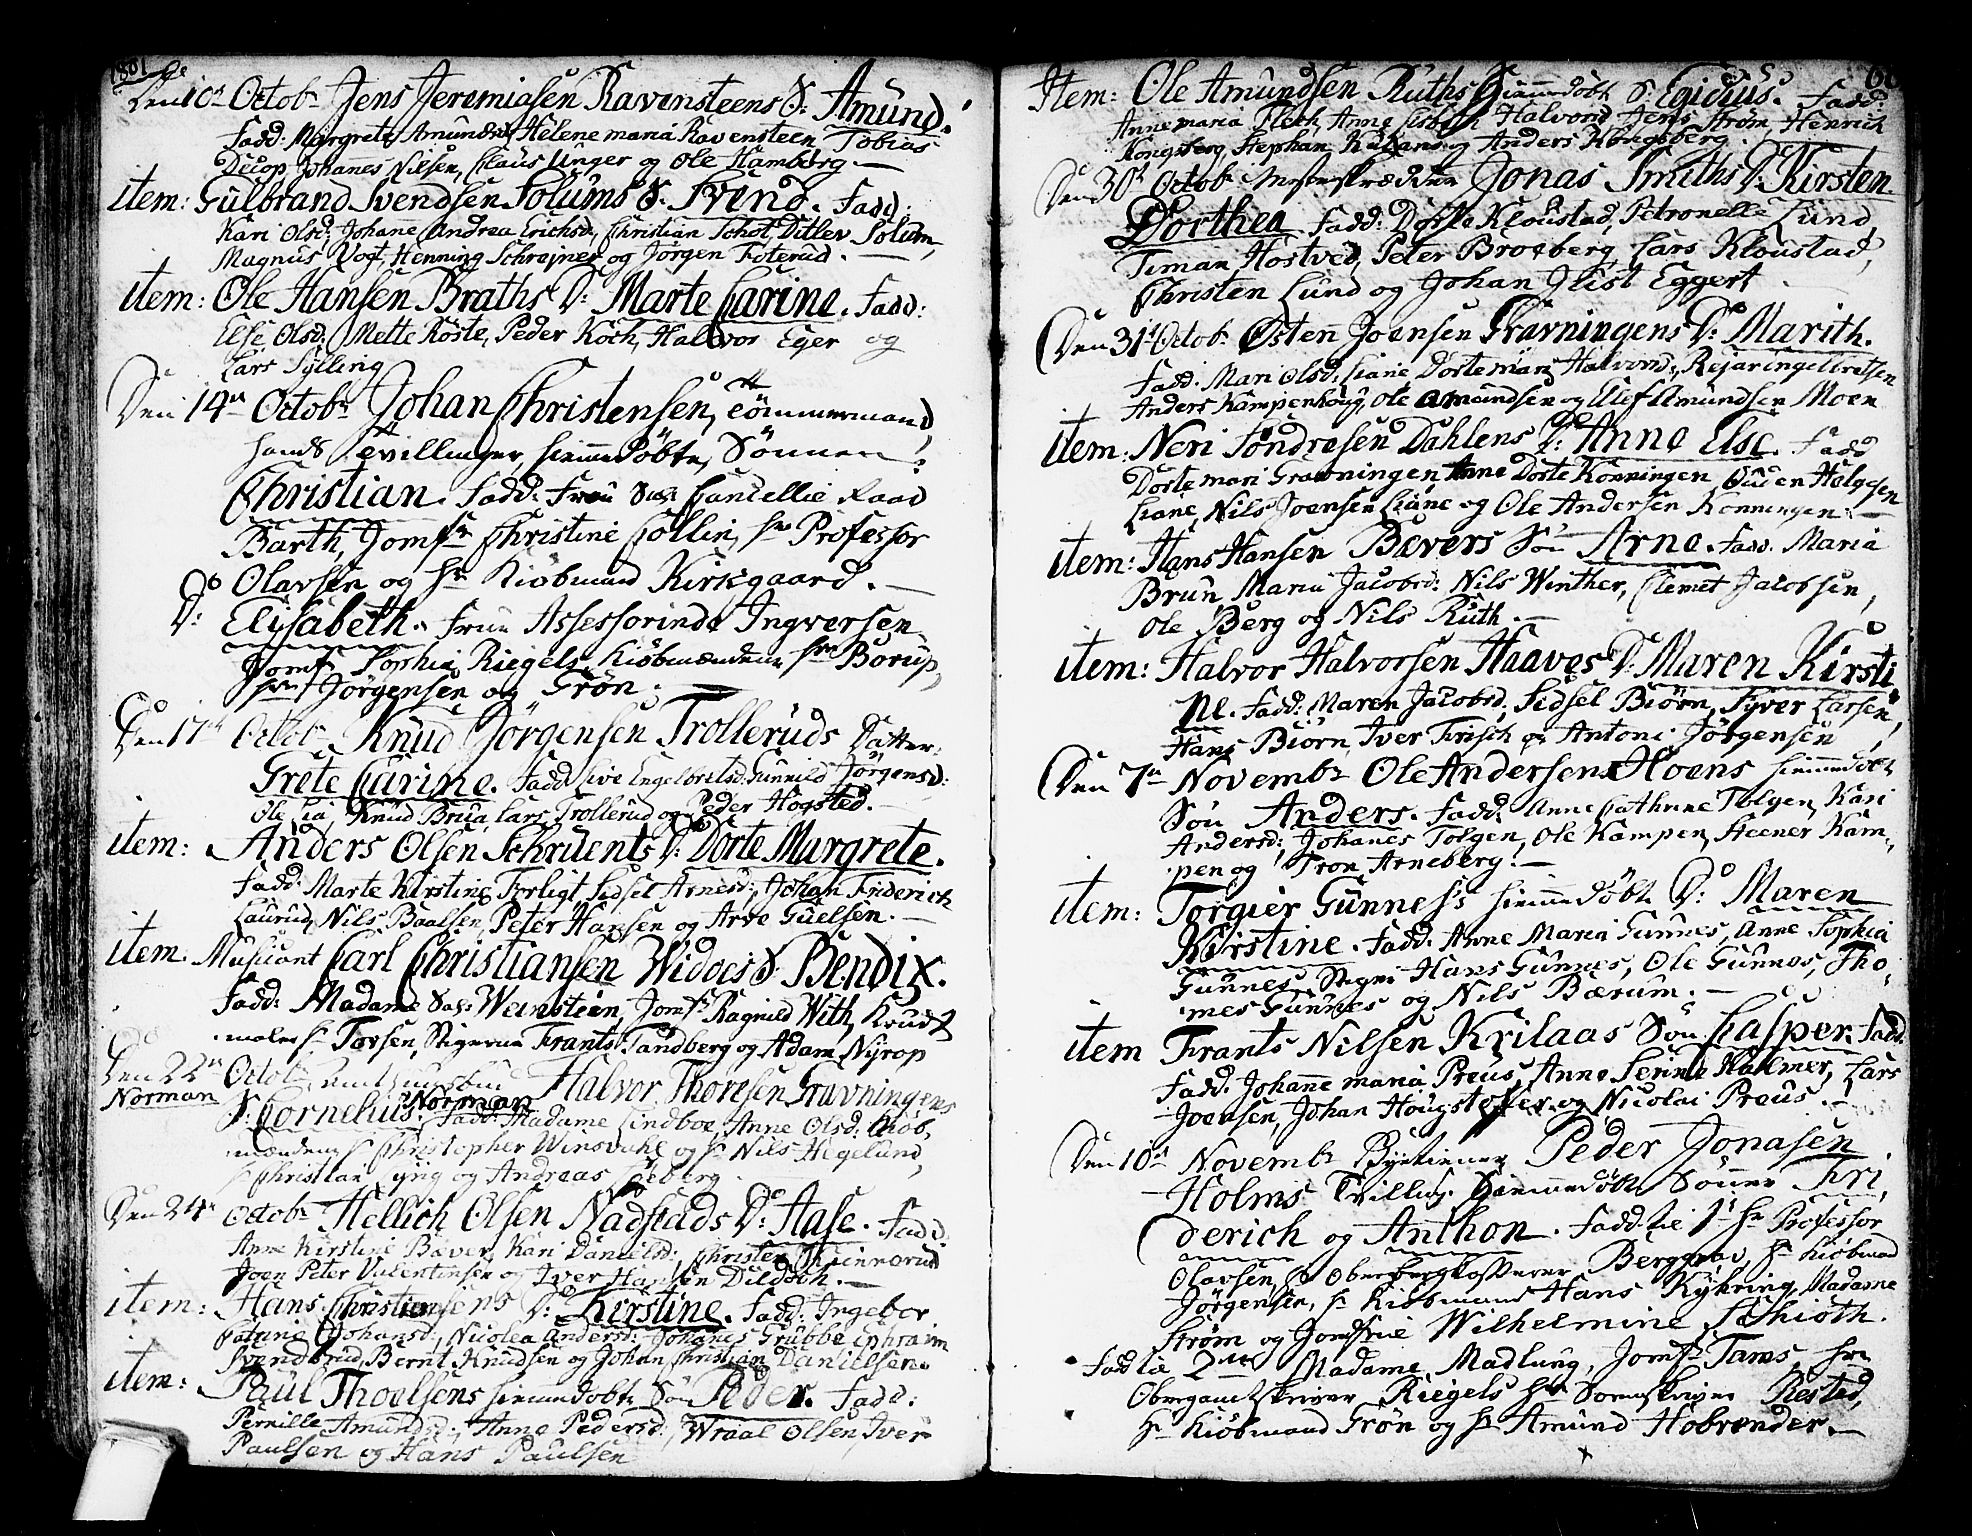 1801
Den 10de Octobr Jens Jeremiasen Ravensteens S: Amund.
Fadd: Margrete Amundsd Helene maria Ravensteen, Tobias
Decop Johannes Nilsen, Claus Unger og Ole Hamberg.
item: Gulbrand Svendsen Solums S. Svend. Fadd:
Kari Olsd: Johane Andrea Erichsd, Christian Schot, Ditlev Solum,
Magnus Vogt, Henning Schrøjner og Jörgen Foterud.
item: Ole Hansen Braths D: Marte Carine. Fadd:
Else Olsd: Mette Röste, Peder Koch, Halvor Eger og
Lars Sylling
Den 14de Octobr Johan Christensen, Tömmermand,
hands Tvillinger, hiemedöbte, Sönnen:
Christian. Fadd: Frue Sal: Cancellie Raad
Barth, Jomfr Christine Collin, Hr Professor
Olavsen og Hr Kiöbmand Kirkgaard.
Do D: Elisabeth. Frue Assessorinde Ingversen
Jomf Sophia Riegels, Kiöbmændene Hr Borup,
Hr Jörgensen og Grön.
Den 17de Octobr Knud Jörgensen Trolleruds Datter:
Grete Carine. Fadd Live Engelbretsd: Gunnild Jörgensd:
Ole Lia, Knud Brua, Lars Trollerud og Peder Högsted.
item: Anders Olsen Schruents D: Dorte Margrete.
Fadd: Marte Kirstine Fyrligt Sidsel Arnesd:, Johan Friderich
Laurud, Nils Baalsen, Peter Hansen og Arve Guelsen.
item. Musicant Carl Christiansen Widoes S. Bendix.
Fadd: Madame Sal: Weinsteen, Jomfr Ragnild With, Krudt
maler Hr Torsen, Stigerne Frants Tandberg og Adam Nyrop
Den 22de Octobr Halvor Thoresen Gravningens
Norman S. Cornelius Norman Fadd: Madame Lindboe, Anne Olsd: Kiöb,
mændene Hr Christopher Winsvahl og Hr Nils Hegelund,
Hr Christian og Andreas Söeberg
Den 24de Octobr Hellich Olsen Nadstads D: Aase. Fadd:
Anne Kirstine Bæver, Kari Danielsd:, Christen Skinnerud
Joen Peter Valentinsen og Iver Hansen Dildoch.
item: Hans Christiansens D: Kirstine. Fadd: Ingebor
Catrine Johansd:, Nicolea Andersd: Johanes Grubbe Ephraim
Svendsrud, Bernt Knudsen og Johan Christian Danielsen.
item: Paul Thoelsens hiemedöbte Sön Peder. Fadd:
Pernille Amundsd:, Anne Pedersd:, Wraal Olsen, Iver
Paulsen og Hans Paulsen
Item: Ole Amundsen Ruths hiemedöbt S. Egidius. Fadd:
Annemaria Pleth, Anne Lisbeth Halvorsd, Jens Ström, Henrich
Kongsberg, Stephan og Anders Kongsberg.
Den 30te Octobr Mesterskrædder Jonas Smiths D: Kirsten
Dorthea. Fadd: Dorte Kloustad, Petronelle Lund,
Timan Hostved, Peter Broeberg, Lars Kloustad,
Christen Lund og Johan Eggert
Den 31te Octobr Østen Joensen Gravningens D: Marith.
Fadd: Mari Olsd: Liane Dorte mari Halvorsd:, Rejar Ingelbretsen
Anders Kampenhoug, Ole Amundsen og Elef Amundsen Moen
item: Neri Söndresen Dahlens D: Anne Else. Fadd
Dorte mari Gravningen Anne Dorte Konningen, Guden Halgesen
Liane, Nils Joensen Liane og Ole Andersen Konningen.
item: Hans Hansen Bævers Sön Arne. Fadd. Maria
Brun Maria Jacobsd: Nils Winther, Clemet Jacobsen,
Ole Berg og Nils Ruth.
item: Halvor Halvorsen Haaves D: Maren Kirsti
ne. Fadd: Maren Jacobsd, Sidsel Biörn, Syver Larsen,
Hans Biörn, Iver Frisch og Antoni Jörgensen
Den 7de Novembr Ole Andersens Hoens hiemedöbt
Sön Anders. Fadd: Anne Cathrine Tolgen, Kari
Andersd:, Johanes Tolgen, Ole Kampen, Steener Kam,
pen og Tron Arneberg.
item: Torgier Gunness's hiemedöbt D: Maren
Kirstine. Fadd. Anne Maria Gunnes, Anne Sophia
Gunnes. Stigr: Hans Gunnes, Ole Gunnes, Tho,
mes Gunnes og Nils Bærum.
item Frants Nilsen Krilaas Sön Casper. Fadd:
Fadd. Johanne maria Preus, Anne Serine Halmer, Lars
Joensen, Johan Hougstoffer og Nicolai Preus.
Den 10de Novembr Bytiener Peder Jonasen
Holms Tvilling. hiemedöbte Sönner Fri,
derich og Anthon. Fadd: til 1ste Hr Professor
Olavsen, Hr Oberberg Berggrav, Hr Kiöbmand
Jörgensen, Hr Kiöbmand Hans Kyhring, Madame
Ström og Jomfrue Wilhelmine Schioth.
Fadd til 2den Madame Madlung, Jomfr Tams, Hr
Obergantskriver Riegels Hr Sorenskriver Rested,
Hr Kiöbmand Grön og Hr Amund Hobrender.